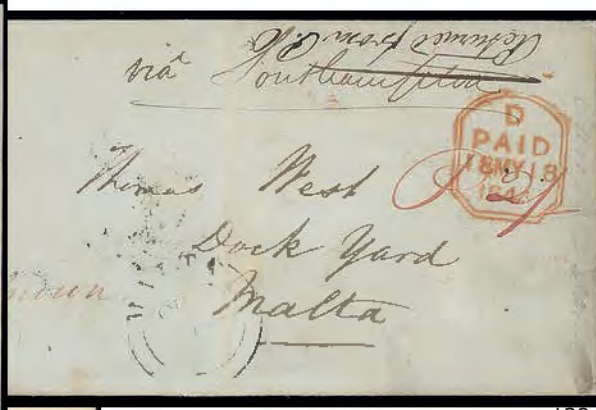 Returned from
viâ Southampton
D
PAID
18 MY 18
Thomas West
Dock Yard
Malta